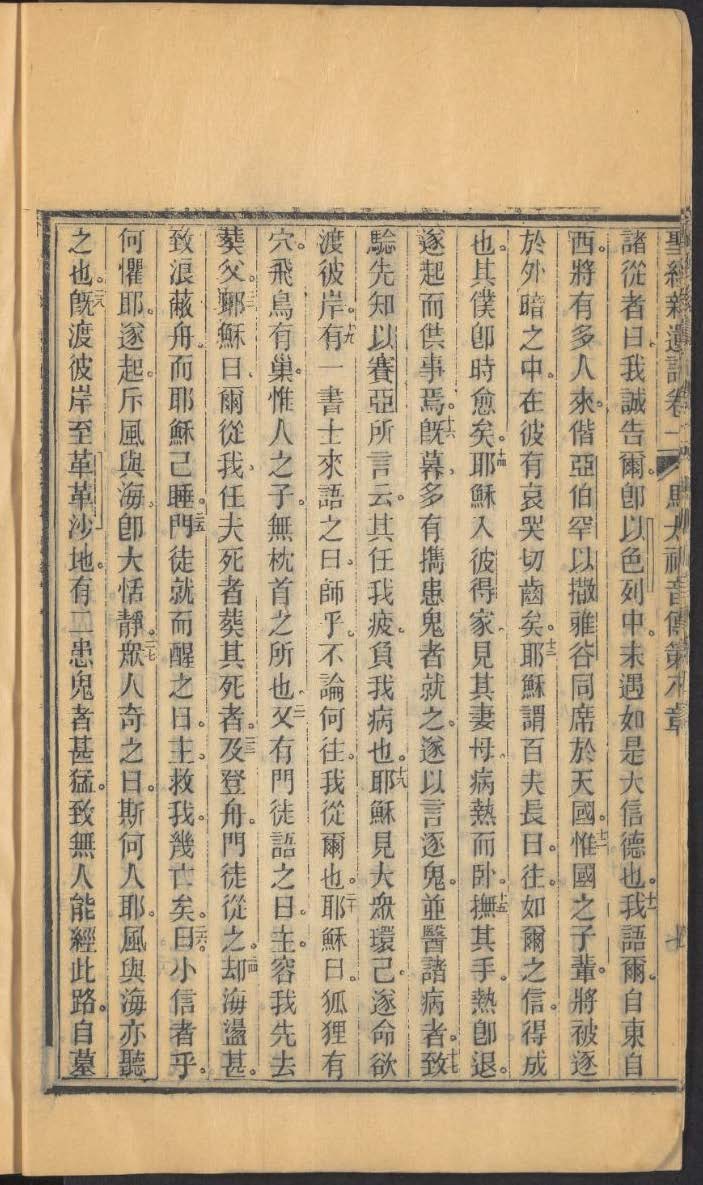 聖經新遺詔卷一 馬太福音傳第八章
諸從者曰、我誠告爾。卽以色列中。未遇如是大信德也。十一我語爾。自東自
西。將有多人來。偕亞伯罕以撒雅谷同席於天國。十二惟國之子輩將被逐
於外暗之中。在彼有哀哭切齒矣。十三耶穌謂百夫長曰。往。如爾之信。得成
也。其僕卽時愈矣。十四耶穌入彼得家、見其妻母、病熱而卧。十五撫其手。熱卽退。
遂起而供事焉。十六旣暮、多有擕患鬼者就之。遂以言逐鬼。並醫諸病者。十七致
驗先知以賽亞所言云。其任我疲。負我病也。十八耶穌見大衆環己。遂命欲
渡彼岸。十九有一書士來語之曰。師乎。不論何往。我從爾也。二十耶穌曰。狐狸有
穴。飛鳥有巢。惟人之子。無枕首之所也。二一又有門徒語之曰。主。容我先去
葬父。二二耶穌曰、爾從我、任夫死者葬其死者。二三及登舟。門徒從之。二四却海盪甚。
致浪蔽舟。而耶穌己睡。二五門徒就而醒之曰。主。救我。幾亡矣。二六曰。小信者乎。
何懼耶。遂起。斥風與海。卽大恬靜。二七衆人奇之曰。斯何人耶。風與海亦聽
之也。二八旣渡彼岸至革革沙地。有二患鬼者甚猛。致無人能經此路。自墓